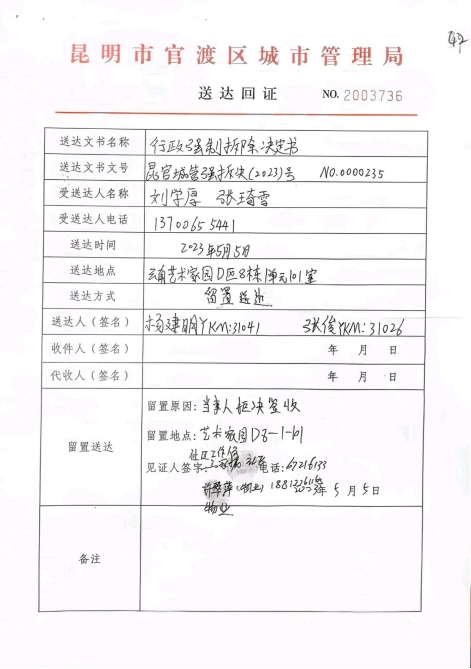 47
昆明市官渡区城市管理局
送达回证 NO. 2003736
送达文书名称 行政强制拆除决定书
送达文书文号 昆官城管强拆决(2023)号 NO.0000235
受送达人名称 刘学厚 张琦雪
受送达人电话 1370065 5441
送达时间 2023年5月5日
送达地点 艺术家园D区8栋1单元101室
送达方式 留置送达
送达人（签名） 杨建明YKM:31041 张俊YKM:31026
收件人（签名） 年 月 日
代收人（签名） 年 月 日
留置送达
留置原因: 当事人拒决签收
留置地点: 艺术家园D8-1-101
社区工作人员
见证人签字: 电话: 67216133
(物业) 年 5 月 5 日
物业
备注